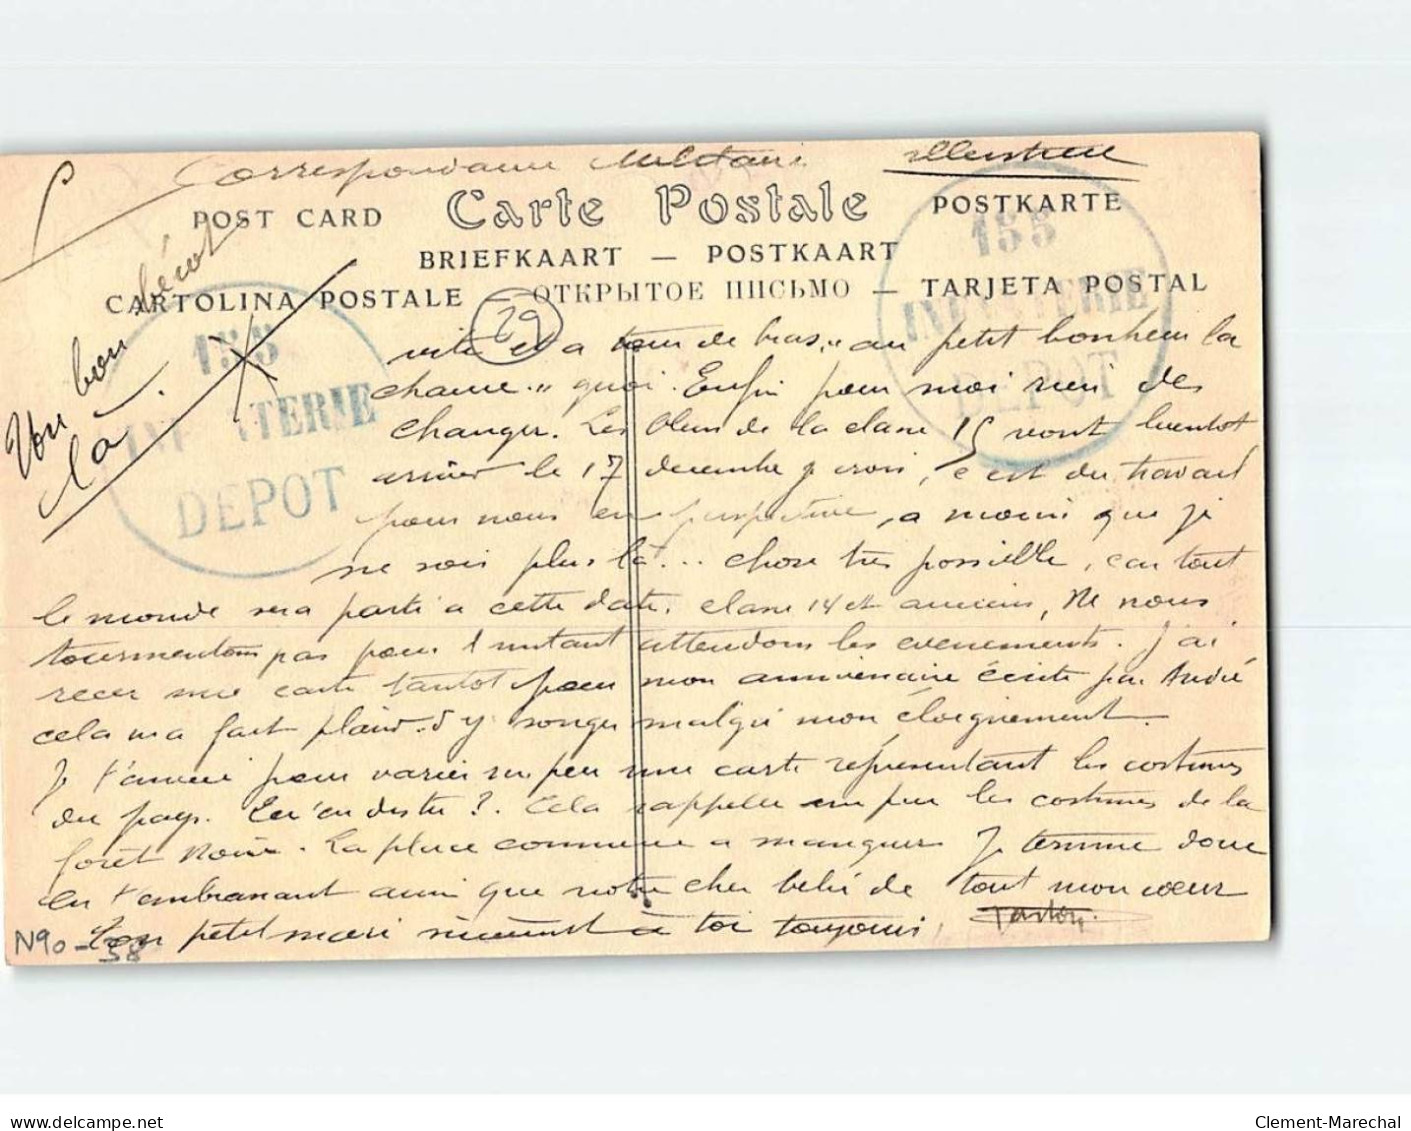 Correspondance Militaire illustrée
POST CARD Carte Postale POSTKARTE
BRIEFKAART — POSTKAART
CARTOLINA POSTALE — ОТКРЫТОЕ ПИСЬМО — TARJETA POSTAL
155
INFANTERIE
DEPOT
155
INFANTERIE
DEPOT
29
Un bon bécot
là.
vite et a tour de bras, " au petit bonheur la
chance. " quoi. Enfin pour moi rien des
changer. Les bleus de la classe 15 vont bientot
arriver le 17 decembre je crois, c'est du travail
pour nous en perspective, a moins que je
ne sois plus là... chose très possible, car tout
le monde sera parti a cette date, classe 14 et anciens, Ne nous
tourmentons pas pour l'instant attendons les evenements. J'ai
recu une carte tantot pour mon anniversaire écrite par André
cela m'a fait plaisir d'y songer malgré mon éloignement.
Je t'envoie pour varier un peu une carte représentant les costumes
du pays. Qu'en dis tu ? Cela rappelle un peu les costumes de la
forêt Noire. La place commence a manquer Je termine donc
en t'embrassant ainsi que notre cher bébé de tout mon cœur
Ton petit mari à toi toujours,
N90-38
Clement-Marechal